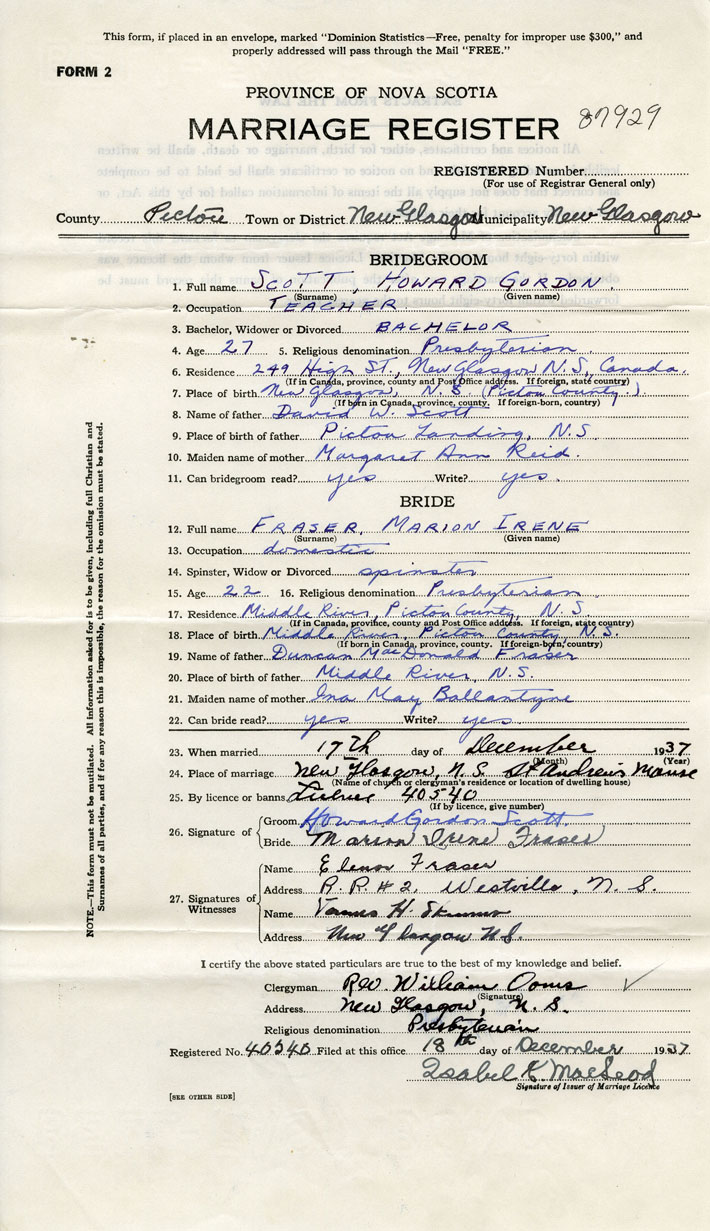 This form, if placed in an envelope, marked "Dominion Statistics—Free, penalty for improper use $300," and
properly addressed will pass through the Mail "FREE."
FORM 2
PROVINCE OF NOVA SCOTIA
MARRIAGE REGISTER 87929
REGISTERED Number
(For use of Registrar General only)
County Pictou Town or District New Glasgow Municipality New Glasgow
BRIDEGROOM
1. Full name SCOTT, HOWARD GORDON
(Surname) (Given name)
2. Occupation TEACHER
3. Bachelor, Widower or Divorced BACHELOR
4. Age 27 5. Religious denomination Presbyterian
6. Residence 249 High St., New Glasgow N.S., Canada.
(If in Canada, province, county and Post Office address. If foreign, state country)
7. Place of birth New Glasgow, N.S. (Pictou County.)
(If born in Canada, province, county. If foreign-born, country)
8. Name of father David W. Scott
9. Place of birth of father Pictou Landing, N.S.
10. Maiden name of mother Margaret Ann Reid.
11. Can bridegroom read? yes Write? yes.
BRIDE
12. Full name FRASER, MARION IRENE
(Surname) (Given name)
13. Occupation domestic
14. Spinster, Widow or Divorced spinster
15. Age 22 16. Religious denomination Presbyterian
17. Residence Middle River, Pictou County, N.S.
(If in Canada, province, county and Post Office address. If foreign, state country)
18. Place of birth Middle River, Pictou County, N.S.
(If born in Canada, province, county. If foreign-born, country)
19. Name of father Duncan MacDonald Fraser
20. Place of birth of father Middle River, N.S.
21. Maiden name of mother Ina May Ballantyne
22. Can bride read? yes Write? yes.
23. When married 17th day of December 1937
(Month) (Year)
24. Place of marriage New Glasgow, N.S. St. Andrew's Manse
(Name of church or clergyman's residence or location of dwelling house)
25. By licence or banns License 40540
(If by licence, give number)
26. Signature of
Groom Howard Gordon Scott.
Bride Marion Irene Fraser
27. Signatures of Witnesses
Name Elenor Fraser
Address R.R.#2, Westville, N.S.
Name H.
Address New Glasgow N.S.
I certify the above stated particulars are true to the best of my knowledge and belief.
Clergyman Rev. William Ooms
(Signature)
Address New Glasgow, N.S.
Religious denomination Presbyterian
Registered No. 40540 Filed at this office 18th day of December 1937
Isabel K. MacLeod
Signature of Issuer of Marriage Licence
[SEE OTHER SIDE]
NOTE.—This form must not be mutilated. All information asked for is to be given, including full Christian and
Surnames of all parties, and if for any reason this is impossible, the reason for the omission must be stated.